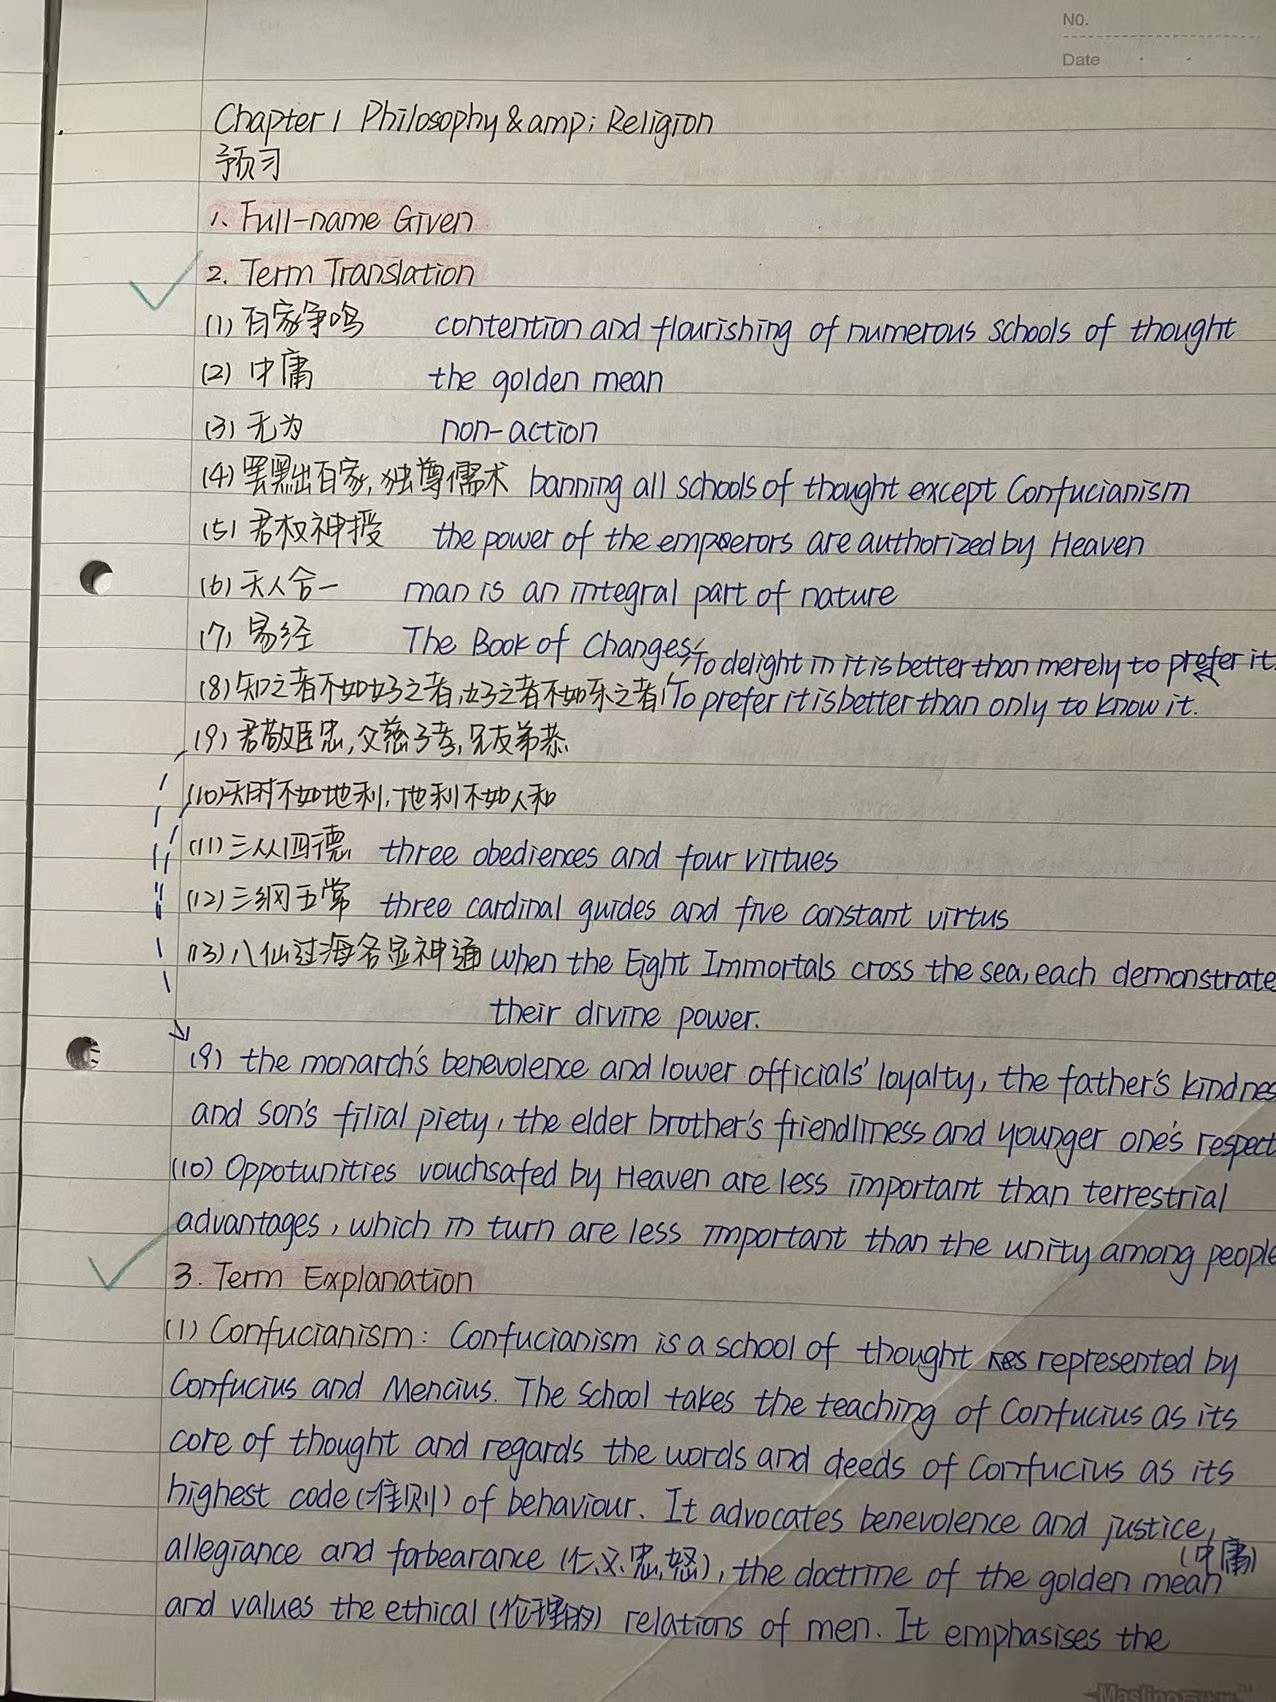 No.
Date
Chapter 1 Philosophy&amp; Religion
预习
1. Full-name Given
2. Term Translation
(1) 百家争鸣 contention and flourishing of numerous schools of thought
(2) 中庸 the golden mean
(3) 无为 non-action
(4) 罢黜百家,独尊儒术 banning all schools of thought except Confucianism
(5) 君权神授 the power of the emperors are authorized by Heaven
(6) 天人合一 man is an integral part of nature
(7) 易经 The Book of Changes
To delight in it is better than merely to prefer it.
(8) 知之者不如好之者,好之者不如乐之者 To prefer it is better than only to know it.
(9) 君敬臣忠,父慈子孝,兄友弟恭
(10) 天时不如地利,地利不如人和
(11) 三从四德 three obediences and four virtues
(12) 三纲五常 three cardinal guides and five constant virtus
(13) 八仙过海各显神通 when the Eight Immortals cross the sea, each demonstrate
their divine power.
(9) the monarch's benevolence and lower officials' loyalty, the father's kindnes
and son's filial piety, the elder brother's friendliness and younger one's respect
(10) Oppotunities vouchsafed by Heaven are less important than terrestrial
advantages, which in turn are less important than the unity among people
3. Term Explanation
(1) Confucianism: Confucianism is a school of thought represented by
Confucius and Mencius. The school takes the teaching of Confucius as its
core of thought and regards the words and deeds of Confucius as its
highest code (准则) of behaviour. It advocates benevolence and justice,
allegiance and forbearance (仁义忠恕), the doctrine of the golden mean (中庸)
and values the ethical (伦理的) relations of men. It emphasises the